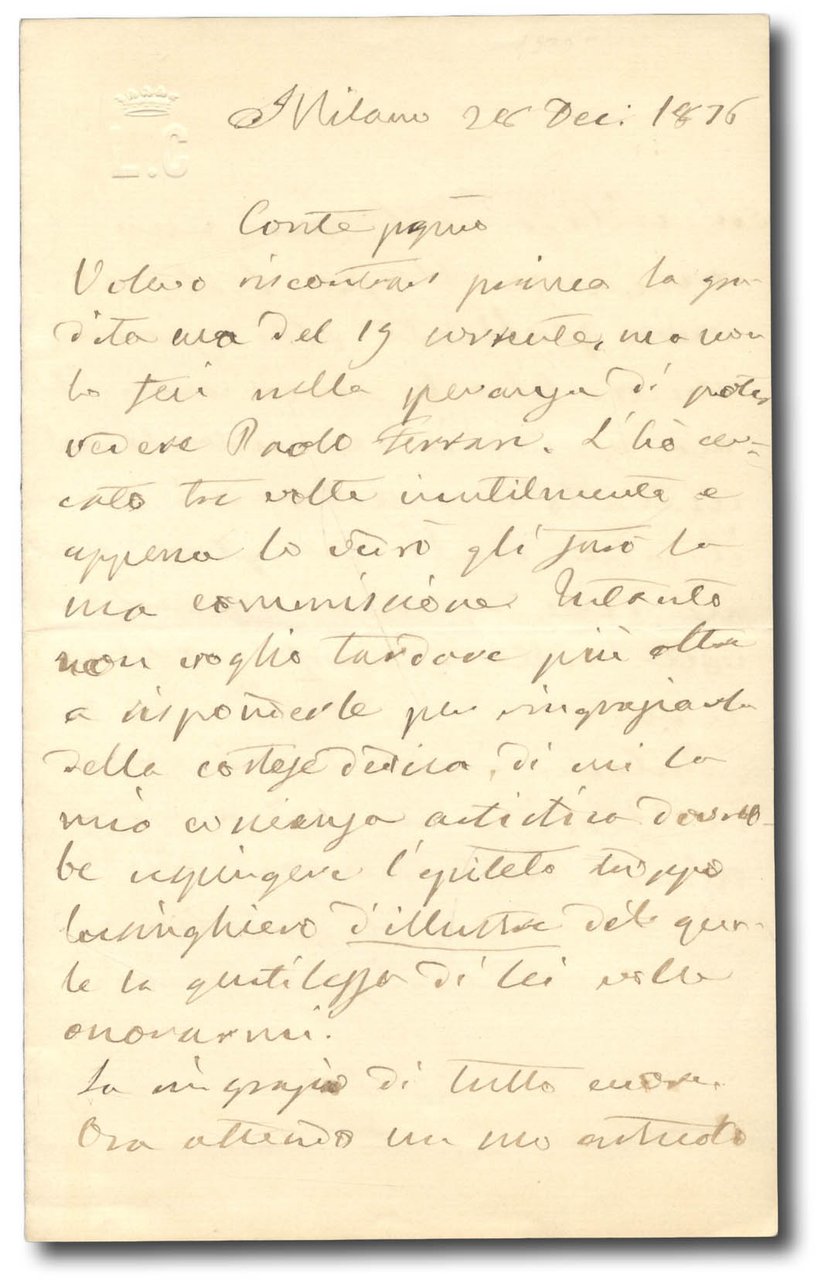 E.G
Milano 28 Dec. 1876
Conte pgmo
Volevo riscontrare prima la gra-
dita sua del 19 corrente, ma non
lo feci nella speranza di poter
vedere Paolo Ferrari. L'hò cer-
cato tre volte inutilmente e
appena lo vedrò gli farò la
sua commissione. Intanto
non voglio tardare più oltre
a risponderle per ringraziarla
della cortese dedica, di cui la
mia coscienza artistica dovreb-
be respingere l'epiteto troppo
lusinghiero d'illustre del qua-
le la gentilezza di lei volle
onorarmi.
La ringrazio di tutto cuore.
Ora attendo un suo articolo